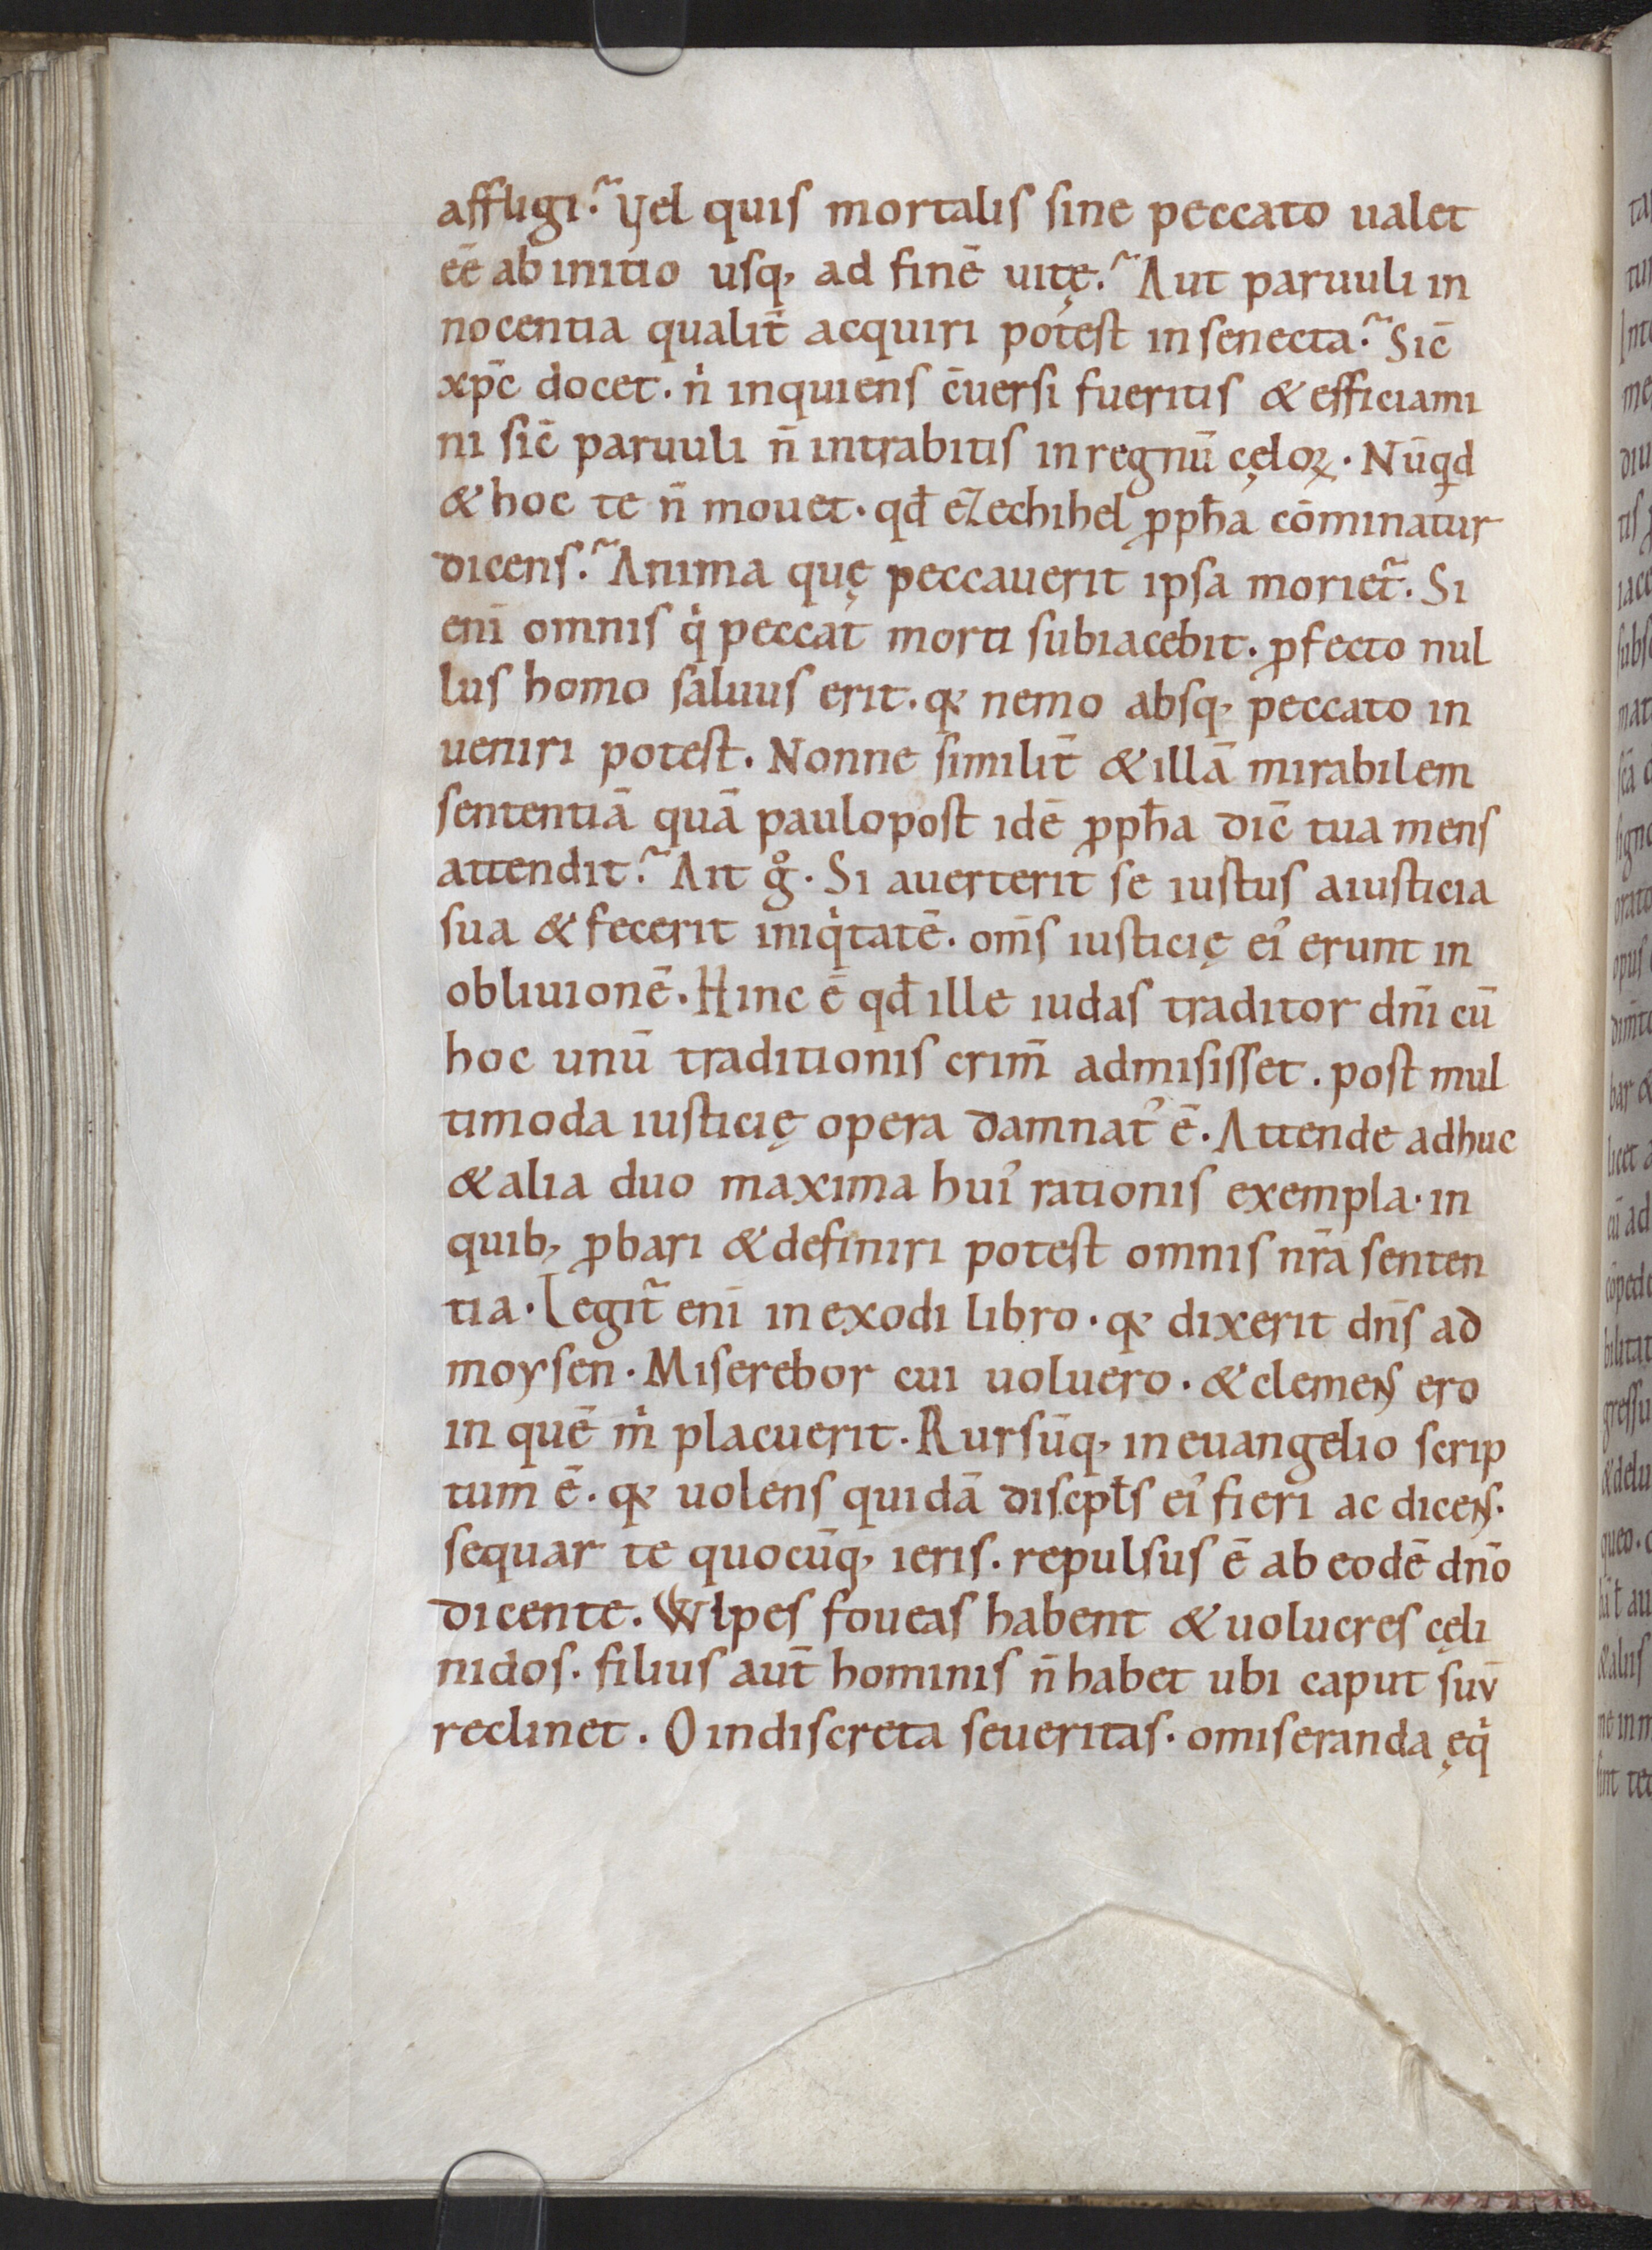 affligi? Vel quis mortalis sine peccato ualet
eē ab initio usq; ad finē uitę? Aut paruuli in
nocentia qualit̄ acquiri potest in senecta? Sic̄
xp̄c docet. nˡ inquiens c̄uersi fueritis & efficiami
ni sic̄ paruuli n̄ intrabitis in regnū cęloꝝ. Nūꝗd
& hoc te n̄ mouet. qđ ezechihel ꝓph̄a cōminatur
dicens? Anima quę peccauerit ipsa moriet̃. Si
enī omnis qͥ peccat morti subiacebit. ꝓfecto nul
lus homo saluus erit. qꝛ nemo absq; peccato in
ueniri potest. Nonne similit̄ & illā mirabilem
sententiā quā paulopost idē ꝓph̄a dic̄ tua mens
attendit? Ait gͦ. Si auerterit se iustus aiusticia
sua & fecerit iniqͥtatē. om̄s iusticię ei᾽ erunt in
obliuionē. Hinc ē qđ ille iudas traditor dn̄i cū
hoc unū traditionis crim̄ admisisset. post mul
timoda iusticię opera damnat᾽ ē. Attende adhuc
& alia duo maxima hui᾽ rationis exempla. in
quib; ꝓbari & definiri potest omnis nr̄a senten
tia. Legit̃ enī in exodi libro. qꝛ dixerit dn̄s ad
moysen. Miserebor cui uoluero. & clemens ero
in quē mͥ placuerit. Rursūq; in euangelio scrip
tum ē. qꝛ uolens quidā discip̄ls ei᾽ fieri ac dicens.
sequar te quocūq; ieris. repulsus ē ab eodē dn̄o
dicente. Wlpes foueas habent & uolucres cęli
nidos. filius aut̄ hominis n̄ habet ubi caput suū
reclinet. O indiscreta seueritas. omiseranda ęqͥ